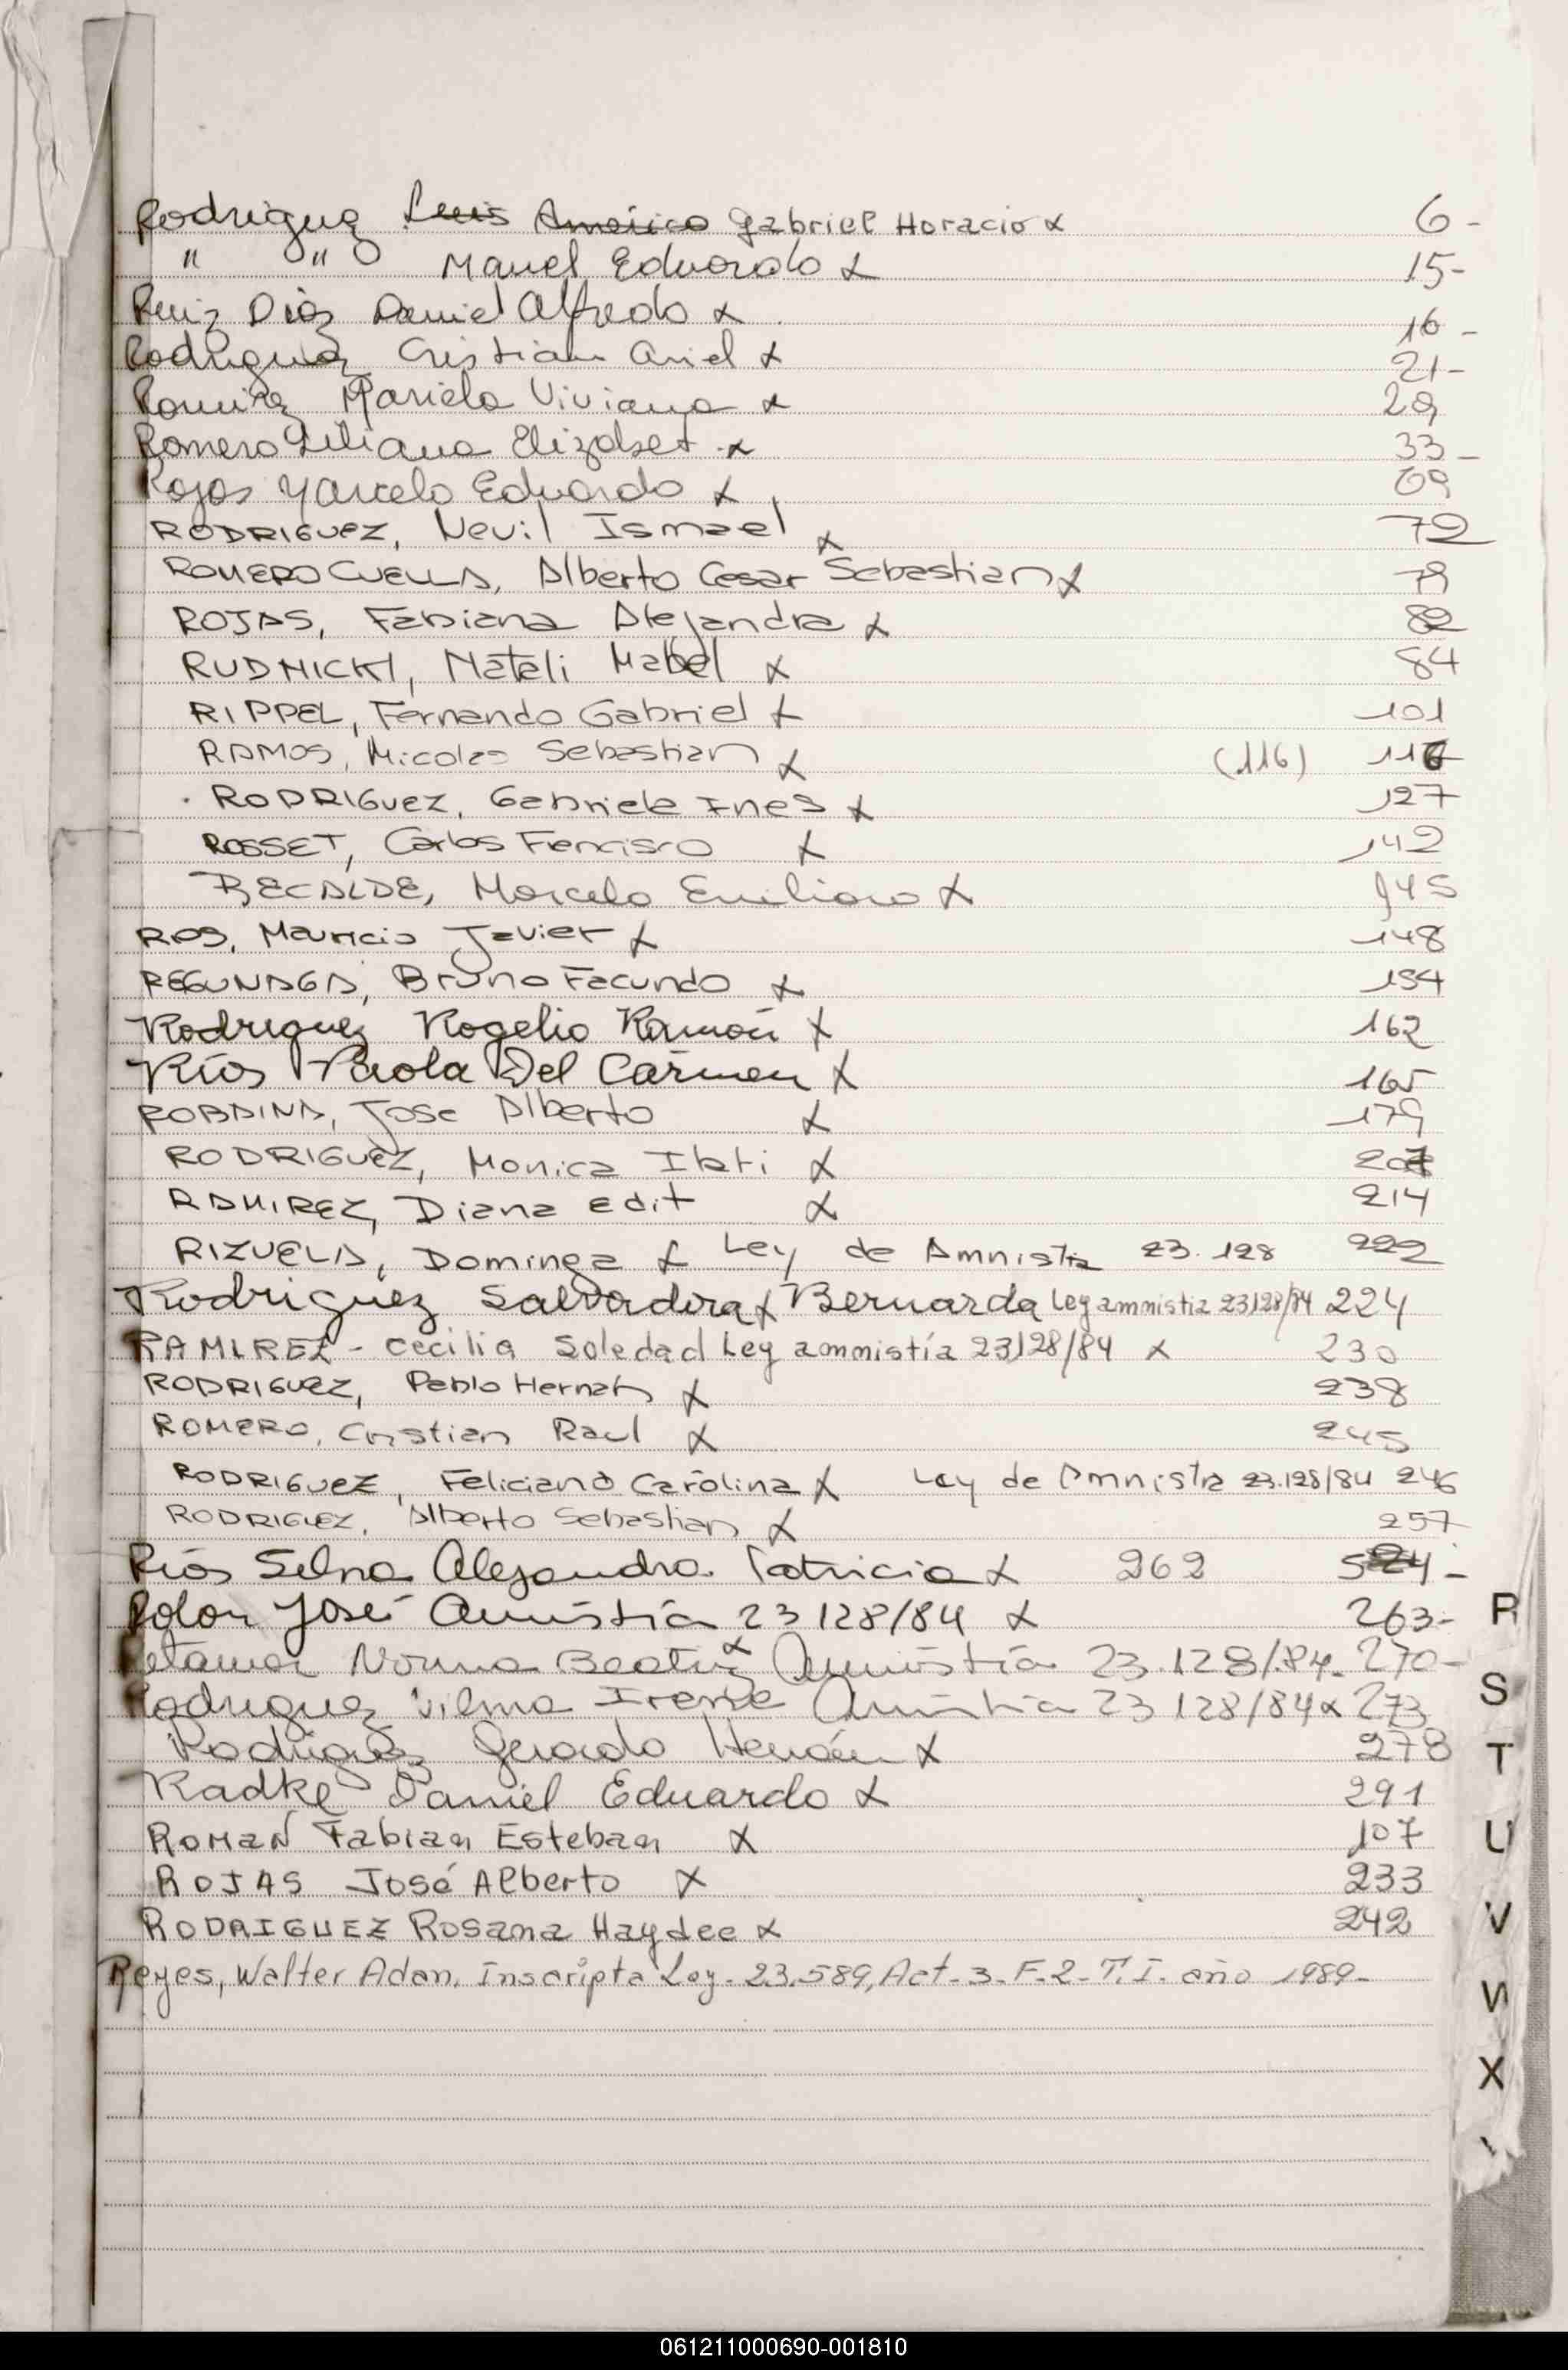 Rodriguez Luis Americo Gabriel Horacio x 6-
" " Manuel Eduardo x 15-
Ruiz Diaz Daniel Alfredo x 16-
Rodriguez Cristian Ariel x 21-
Ramirez Mariela Viviana x 29
Romero Liliana Elizabet x 33-
Rojas Marcelo Eduardo x 69
RODRIGUEZ, Nevil Ismael x 72
ROMERO CUELLA, Alberto Cesar Sebastian x 79
ROJAS, Fabiana Alejandra x 82
RUDNICKI, Natali Mabel x 84
RIPPEL, Fernando Gabriel x 101
RAMOS, Nicolas Sebastian x (116) 116
RODRIGUEZ, Gabriela Ines x 127
ROSSET, Carlos Francisco x 142
RECALDE, Marcelo Emiliano x 145
ROS, Mauricio Javier x 148
REGUNAGA, Bruno Facundo x 154
Rodriguez Rogelio Ramón x 162
Ríos Paola Del Carmen x 165
ROBAINA, Jose Alberto x 179
RODRIGUEZ, Monica Itati x 207
RAMIREZ, Diana Edit x 214
RIZUELA, Dominga x Ley de Amnistia 23.128 222
Rodriguez Salvadora x Bernarda Ley ammistia 23128/84 224
RAMIREZ - Cecilia Soledad Ley ammistía 23128/84 x 230
RODRIGUEZ, Pablo Hernan x 238
ROMERO, Cristian Raul x 245
RODRIGUEZ, Feliciana Carolina x Ley de Amnistia 23.128/84 246
RODRIGUEZ, Alberto Sebastian x 257
Ríos Selna Alejandra Patricia x 262 524-
Rolon José Amnistía 23128/84 x 263-
Retamar Norma Beatriz x Amnistía 23.128/84- 270-
Rodriguez Vilma Irene Amnistia 23128/84 x 273
Rodriguez Gerardo Hernán x 278
Radke Daniel Eduardo x 291
ROMAN Fabian Esteban x 107
ROJAS José Alberto x 233
RODRIGUEZ Rosana Haydee x 242
Reyes, Walter Adan. Inscripta Ley- 23.589, Act- 3- F-2- T.I- año 1989-
R
S
T
U
V
W
X
061211000690-001810